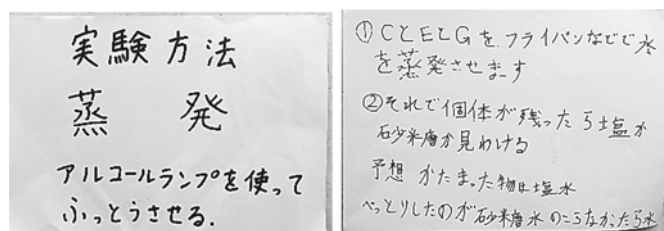 実験方法
蒸発
アルコールランプを使って
ふっとうさせる.
①CとEとGを、フライパンなどで水
を蒸発させます
②それで個体が残ったら塩か
砂糖か見わける
予想 かたまった物は塩水
べっとりしたのが砂糖水のこらなかったら水